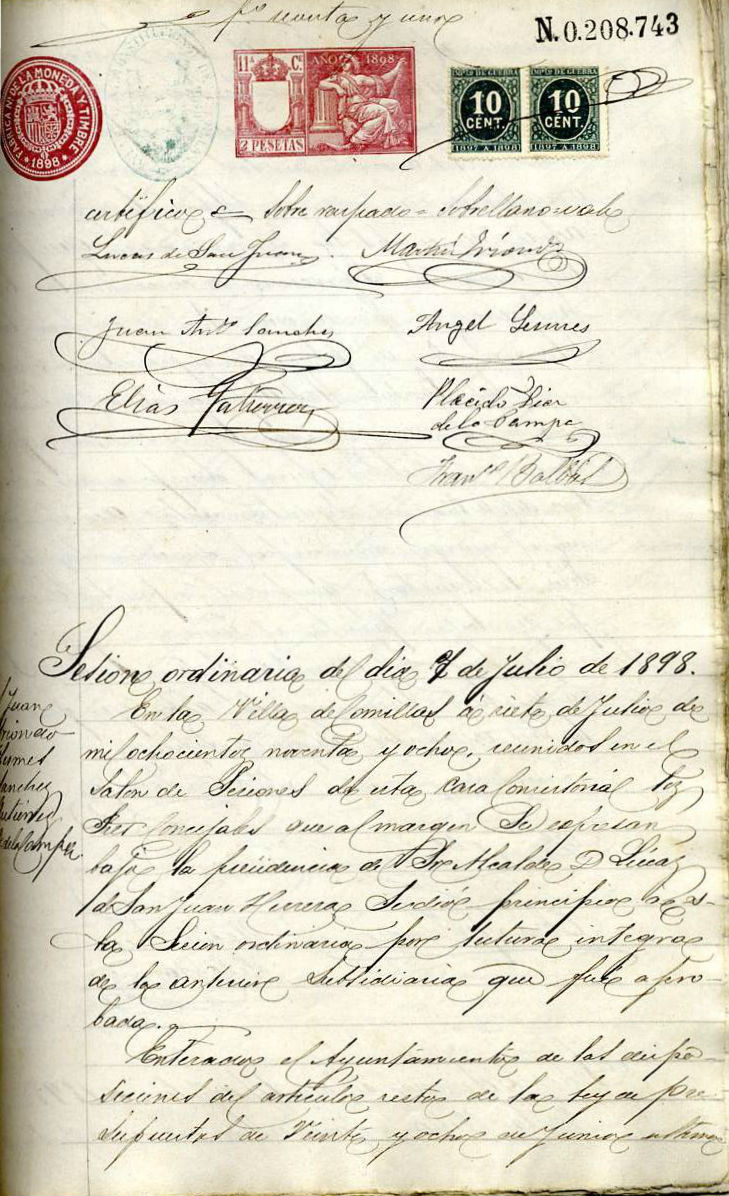 y uno
N.0.208.743
FABRICA Nal. DE LA MONEDA Y TIMBRE
1898
11ª C.
AÑO 1898
2 PESETAS
IMPto DE GUERRA
10
CENT.
1897 A 1898
IMPto DE GUERRA
10
CENT.
1897 A 1898
certifico = Sobre raspado = vale
Lucas de San Juan
Martin
Juan Anto. Sanchez
Angel
Elias Gutierrez
Placido Diaz
de la Campa
Franco. Balbás
Sesion ordinaria del dia 7 de Julio de 1898.
San Juan
Sanchez
Gutierrez
de la Campa
En la Villa de Comillas á siete de Julio de
mil ochocientos noventa y ocho, reunidos en el
Salon de Sesiones de esta Casa Consistorial los
Sres Concejales que al margen Se expresan
bajo la presidencia del Sr Alcalde D Lucas
de San Juan Herrera Se dió principio á es-
ta Sesion ordinaria por lectura integra
de la anterior Subsidiaria que fué apro-
bada.
Enterado el Ayuntamiento de las dispo-
siciones del articulo sesto de la ley de pre-
supuestos de Veinte y ocho de Junio ultimo